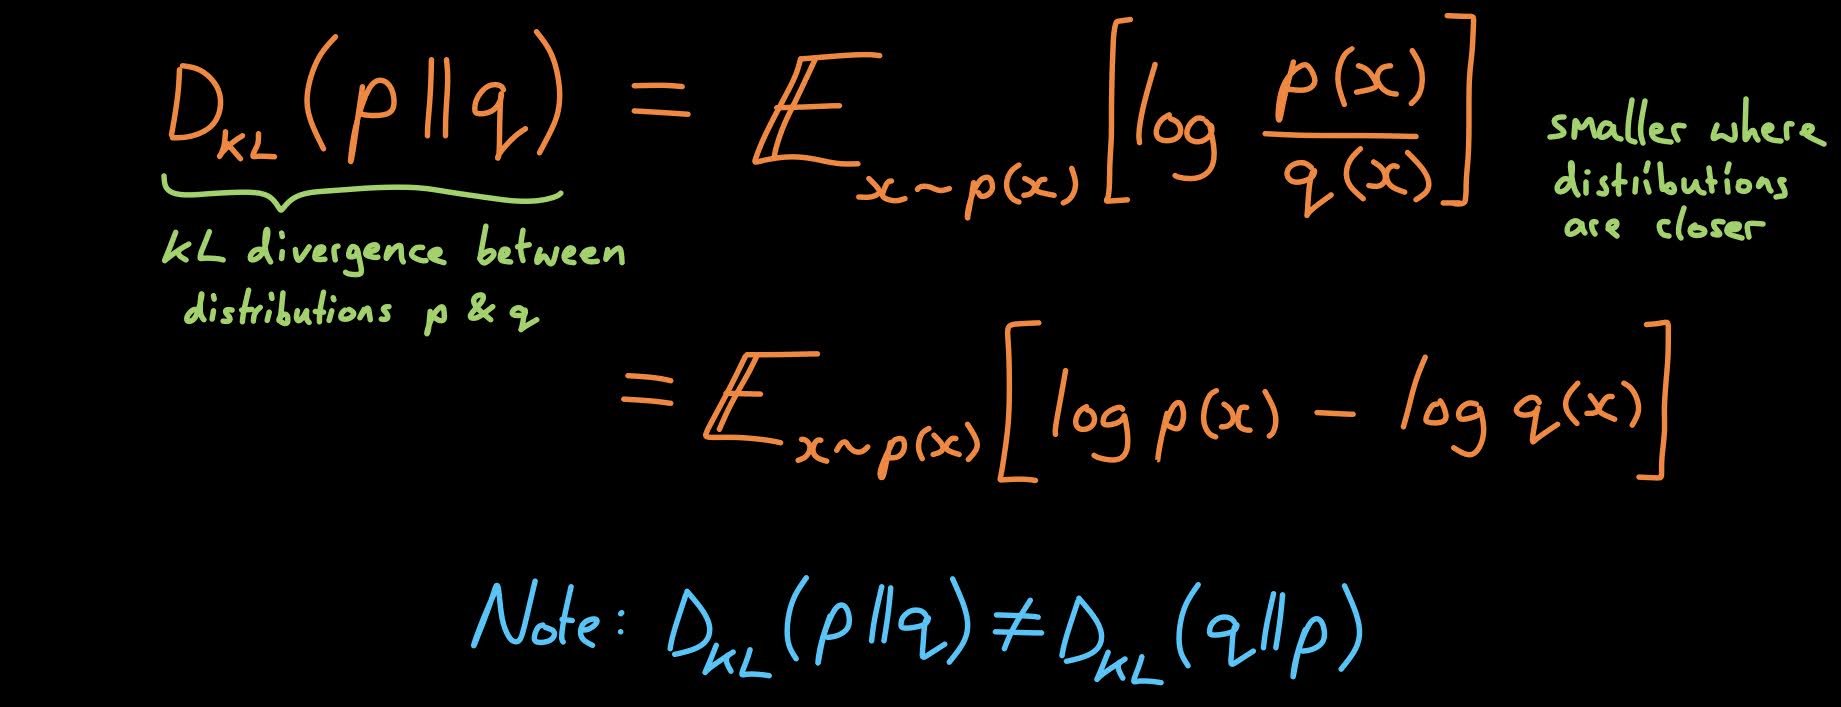 D_KL (p || q) = E_{x~p(x)} [ log p(x) / q(x) ]
smaller where
distributions
are closer
KL divergence between
distributions p & q
= E_{x~p(x)} [ log p(x) - log q(x) ]
Note: D_KL (p || q) ≠ D_KL (q || p)